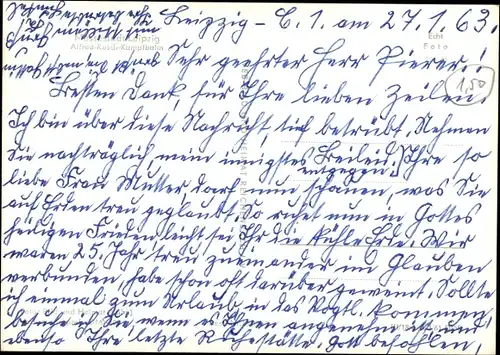 Leipzig - C. 1. am 27.1.63.
Leipzig
Alfred-Rosch-Kampfbahn
Echt
Foto
Sehr geehrter Herr Pierer!
1,50
Besten Dank, für Ihre lieben Zeilen.
Ich bin über diese Nachricht, tief betrübt. Nehmen
Sie nachträglich, mein innigstes Beileid entgegen. Ihre so
liebe Frau Mutter darf nun schauen, was Sie
auf Erden treu geglaubt. So ruhet nun in Gottes
heiligen Frieden leicht sei Ihr die kühle Erde. Wir
waren 25. Jahr treu zueinander im Glauben
verbunden, habe schon oft darüber geweint. Sollte
ich einmal zum Urlaub, in das Vogtl. kommen,
besuche ich Sie, wenn es Ihnen angenehm ist und
ebenso Ihre letzte Ruhestätte. Gott befohlen,